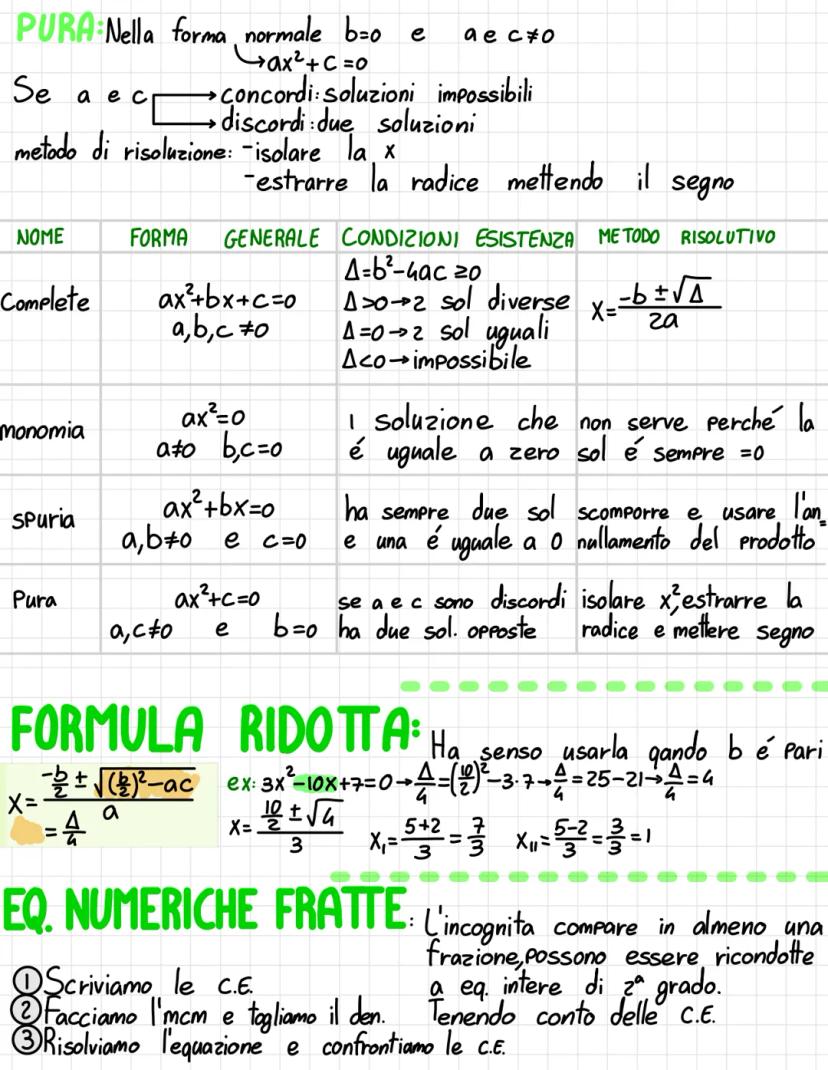 PURA: Nella forma normale b=0 e a e c≠0
↳ax²+c=0
Se a e c → concordi: soluzioni impossibili
→ discordi: due soluzioni
metodo di risoluzione: -isolare la x
-estrarre la radice mettendo il segno
NOME FORMA GENERALE CONDIZIONI ESISTENZA METODO RISOLUTIVO
Complete
ax²+bx+c=0
a,b,c ≠0
Δ=b²-4ac ≥0
Δ>0→2 sol diverse
Δ=0→2 sol uguali
Δ<0→impossibile
x=(-b±√Δ)/2a
monomia
ax²=0
a≠0 b,c=0
1 soluzione che
é uguale a zero
non serve perché la
sol é sempre =0
spuria
ax²+bx=0
a,b≠0 e c=0
ha sempre due sol
e una é uguale a 0
scomporre e usare l'an=
nullamento del prodotto
Pura
ax²+c=0
a,c≠0 e b=0
se a e c sono discordi
ha due sol. opposte
isolare x², estrarre la
radice e mettere segno
FORMULA RIDOTTA: Ha senso usarla qando b é pari
x=(-b/2 ± √((b/2)²-ac))/a
=Δ/4
ex: 3x²-10x+7=0→Δ/4=(10/2)²-3·7→Δ/4=25-21→Δ/4=4
x=(10/2 ± √4)/3 x₁=(5+2)/3=7/3 x₁₁=(5-2)/3=3/3=1
EQ. NUMERICHE FRATTE: L'incognita compare in almeno una
frazione, possono essere ricondotte
a eq. intere di 2ª grado.
Tenendo conto delle C.E.
① Scriviamo le C.E.
② Facciamo l'mcm e togliamo il den.
③ Risolviamo l'equazione e confrontiamo le C.E.